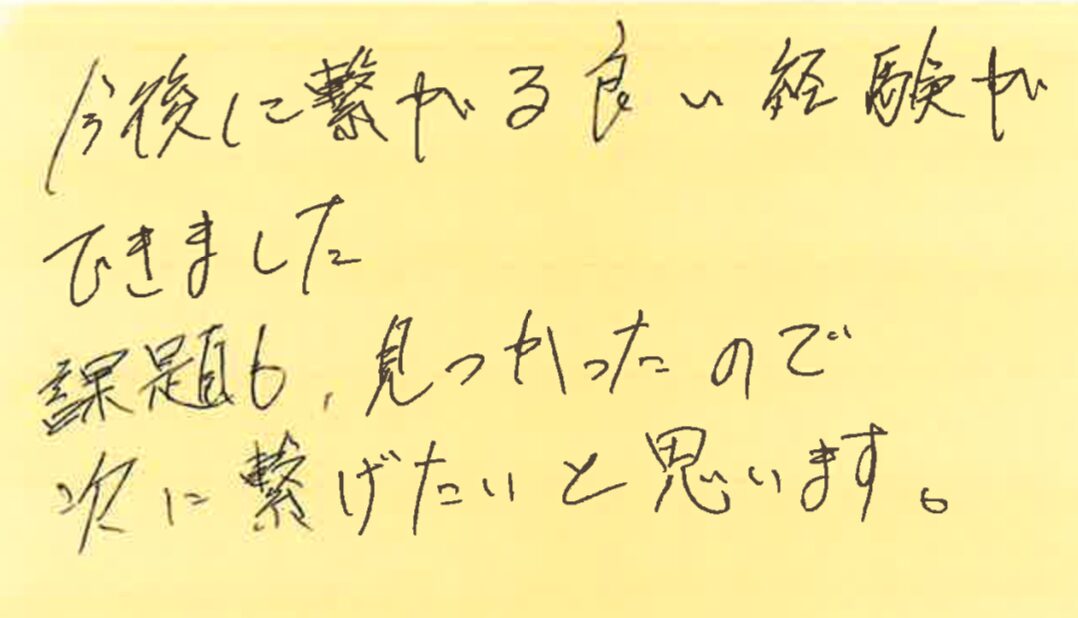 今後に繋がる良い経験が
できました
課題も、見つかったので
次に繋げたいと思います。